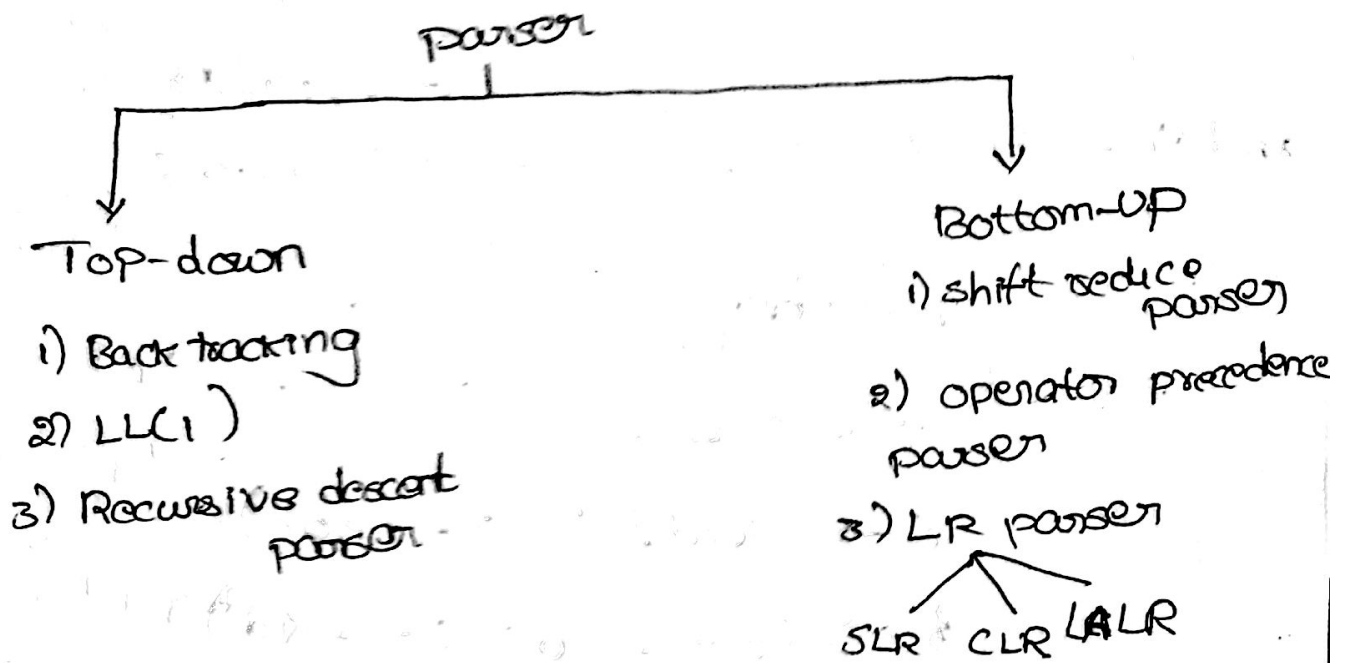 parser
Top-down
1) Back tracking
2) LL(1)
3) Recursive descent
parser
Bottom-up
1) shift reduce
parser
2) operator precedence
parser
3) LR parser
SLR CLR LALR